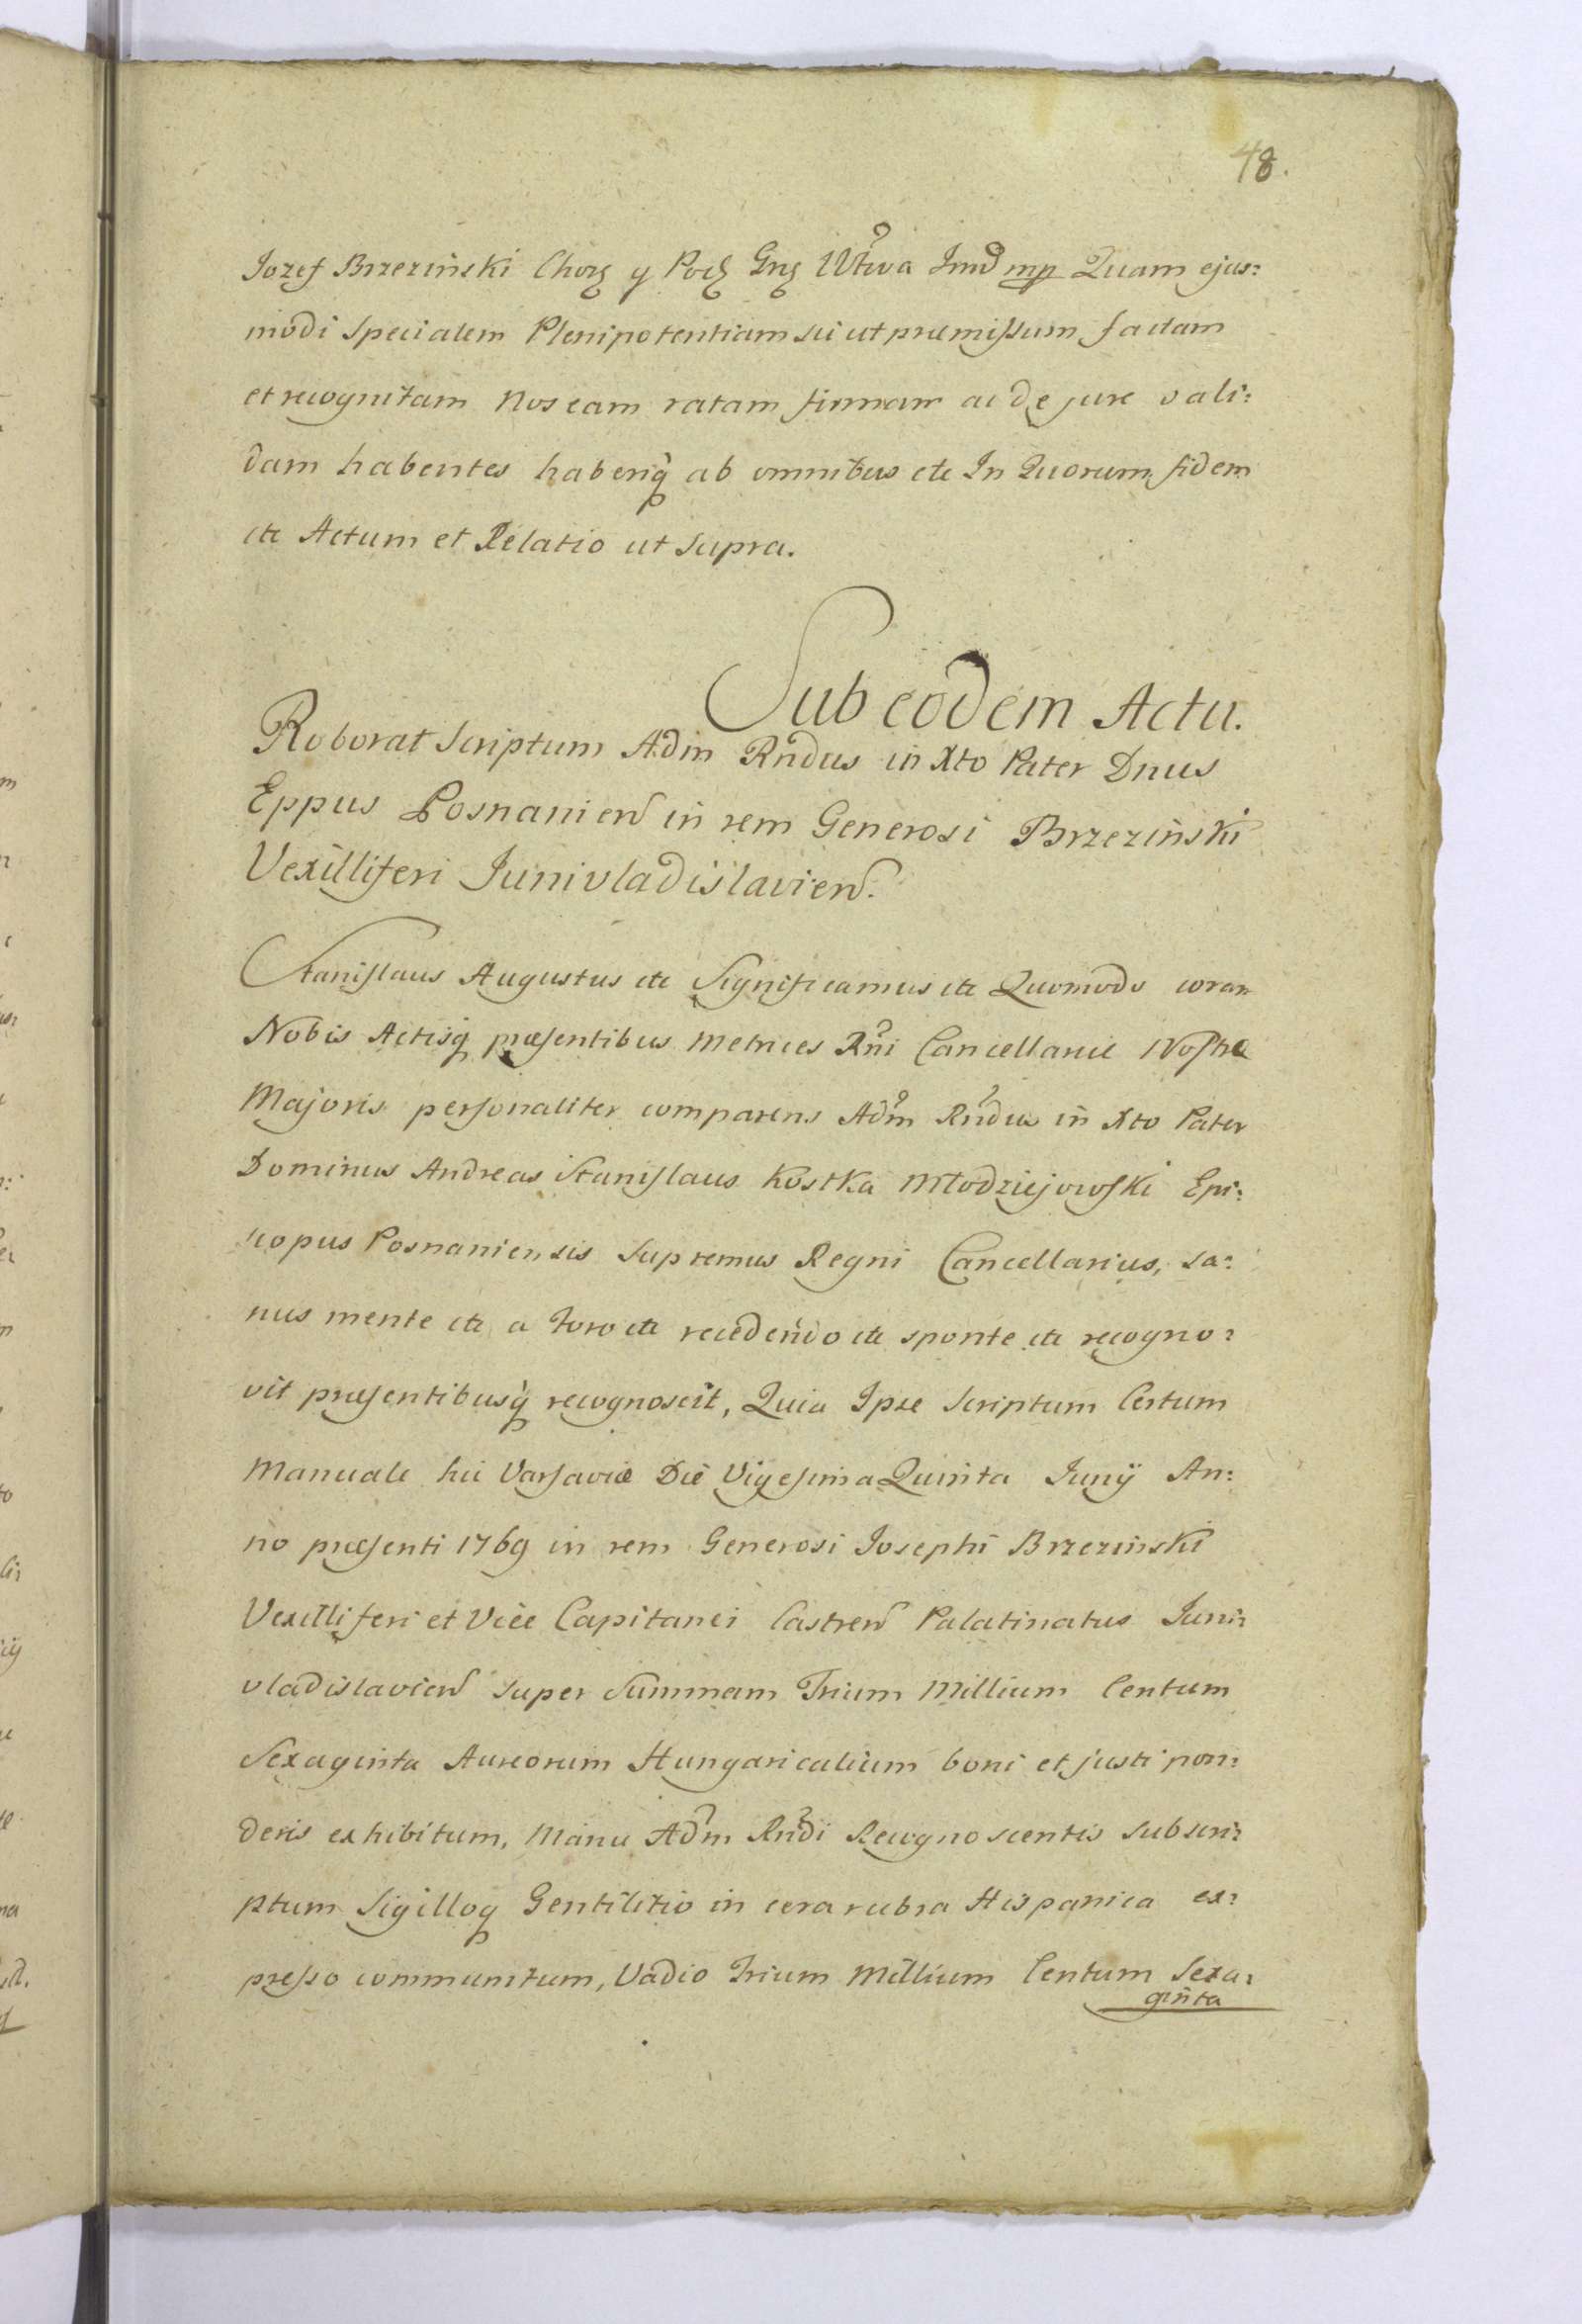 48.
Jozef Brzezinski Chorż y Podż Grż Wttwa Jnnd mp Quam ejus:
modi Specialem Plenipotentiam sic ut præmissum factam
et recognitam Nos eam ratam firmam ac de jure vali:
dam habentes haberiq; ab omnibus etc In Quorum fidem
etc Actum et Relatio ut Supra.
Sub eodem Actu.
Roborat Scriptum Adm Rndus in Xto Pater Dnus
Eppus Posnanien in rem Generosi Brzezinski
Vexilliferi Junivladislavien.
Stanislaus Augustus etc Significamus etc Quomodo coram
Nobis Actisq; præsentibus Metrices Rni Cancellariæ Nostræ
Majoris personaliter comparens Adm Rndus in Xto Pater
Dominus Andreas Stanislaus Kostka Młodziejowski Epi:
scopus Posnaniensis Supremus Regni Cancellarius, sa:
nus mente etc a Foro etc recedendo etc sponte etc recogno:
vit præsentibusq; recognoscit, Quia Ipse Scriptum Certum
Manuale hic Varsaviæ Die Vigesima Quinta Junij An:
no præsenti 1769 in rem Generosi Josephi Brzezinski
Vexilliferi et Vice Capitanei Castren Palatinatus Juni:
vladislavien super Summam Trium Millium Centum
Sexaginta Aureorum Hungaricalium boni et justi pon:
deris exhibitum, Manu Adm Rndi Recognoscentis subscri:
ptum Sigilloq; Gentilitio in cera rubra Hispanica ex:
presso communitum, Vadio Trium Millium Centum Sexa:
ginta